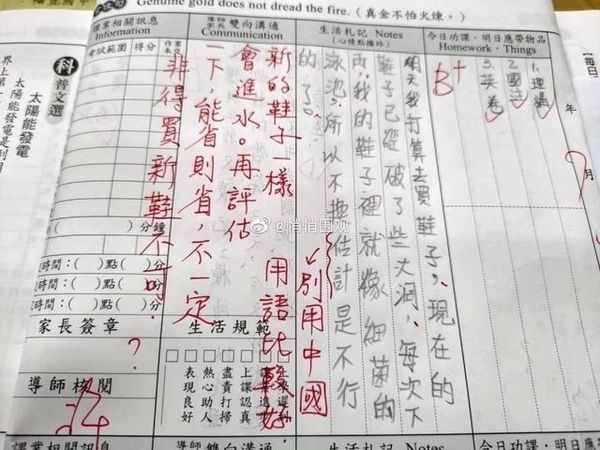 Genuine gold does not dread the fire.（真金不怕火煉。）
今日功課・明日應帶物品
Homework・Things
1.理
2.國
3.英卷
年
月
生活札記 Notes
（心情點播站）
B+
明天我打算去買鞋子，現在的
鞋子已經破了些大洞，每次下
雨，我的鞋子裡就像細菌的
泳池，所以不換估計是不行
的了。
別用中國
用語比較好
導師
家長
雙向溝通
新的鞋子一樣
會進水。再評估
一下，能省則省，不一定
非得買新鞋不可
生活規範
上課認真
盡責打掃
熱心助人
表現良好
課業相關訊息
Information
考試範圍
得分
（ ）分鐘
時間：（ ）點（ ）分
時間：（ ）點（ ）分
家長簽章
?
導師核閱
科普文選
太陽能發電
太陽能發電是
界上第
悄悄围观
課業相關訊息
導師 雙向溝通
生活札記 Notes
今日功課・明日應